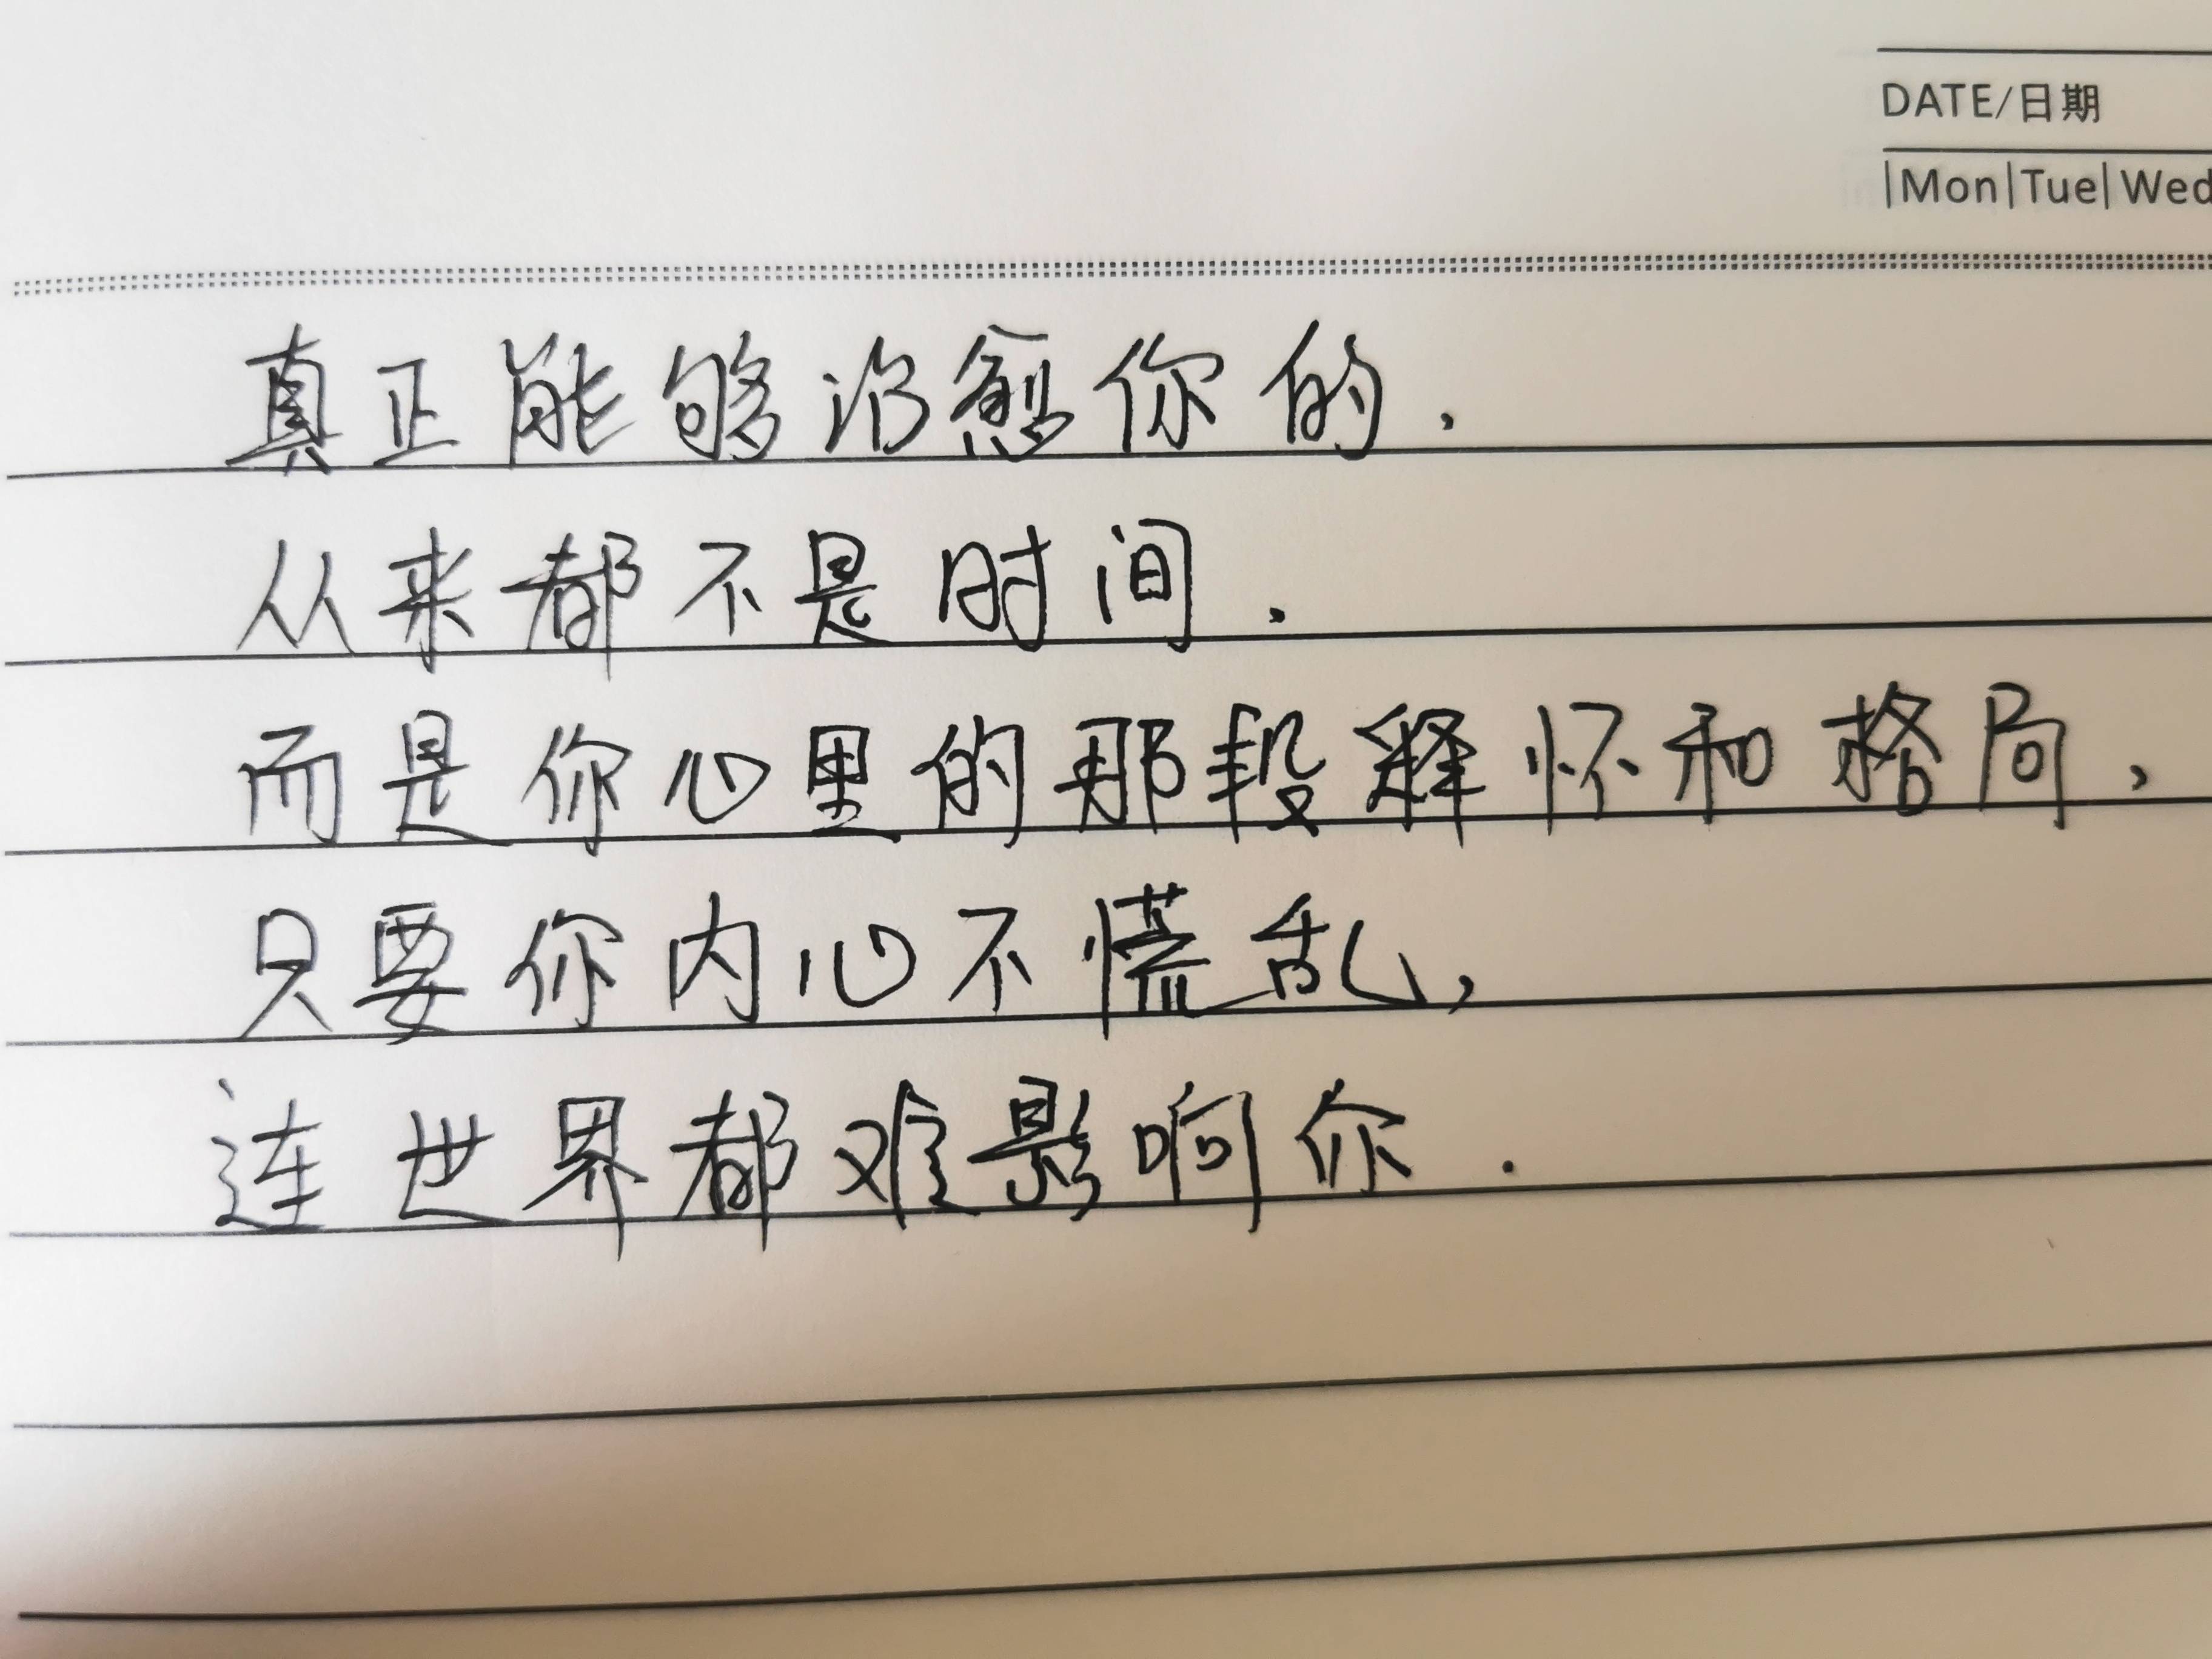 DATE/日期
|Mon|Tue|Wed
真正能够治愈你的，
从来都不是时间.
而是你心里的那段释怀和格局，
只要你内心不慌乱，
连世界都难影响你.